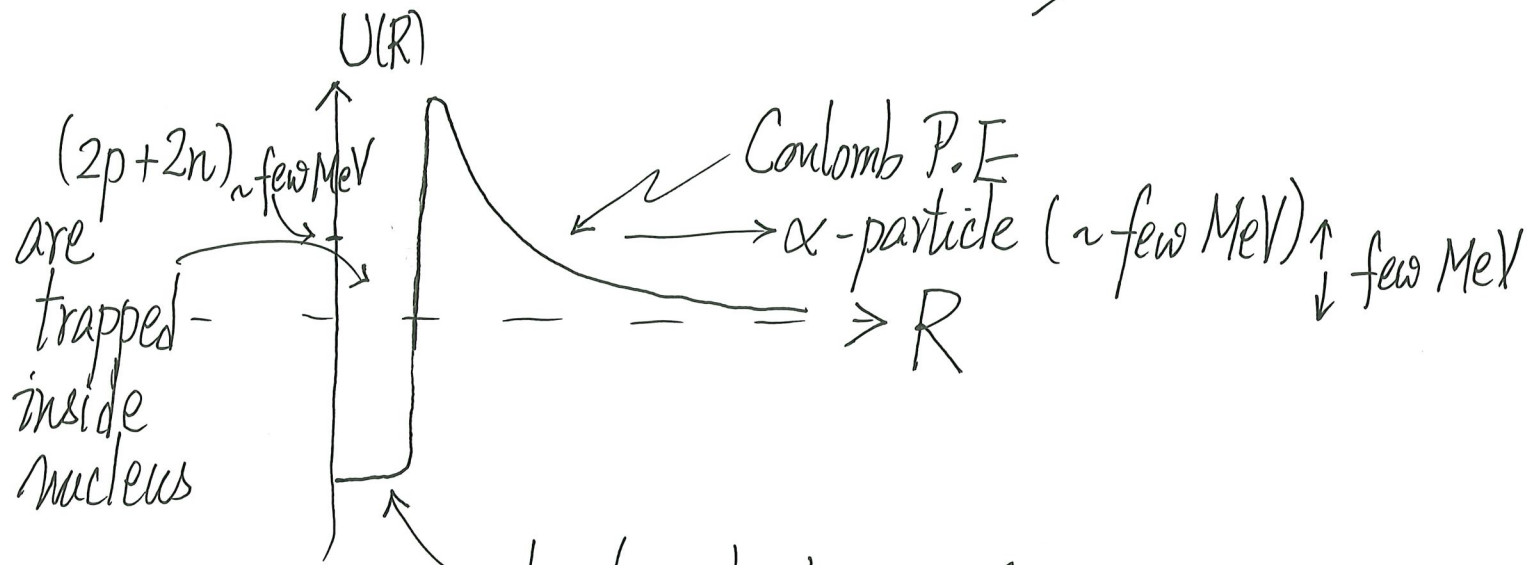 U(R)
(2p+2n)
~few MeV
are
trapped
inside
nucleus
Coulomb P.E
α-particle (~few MeV)
few MeV
R